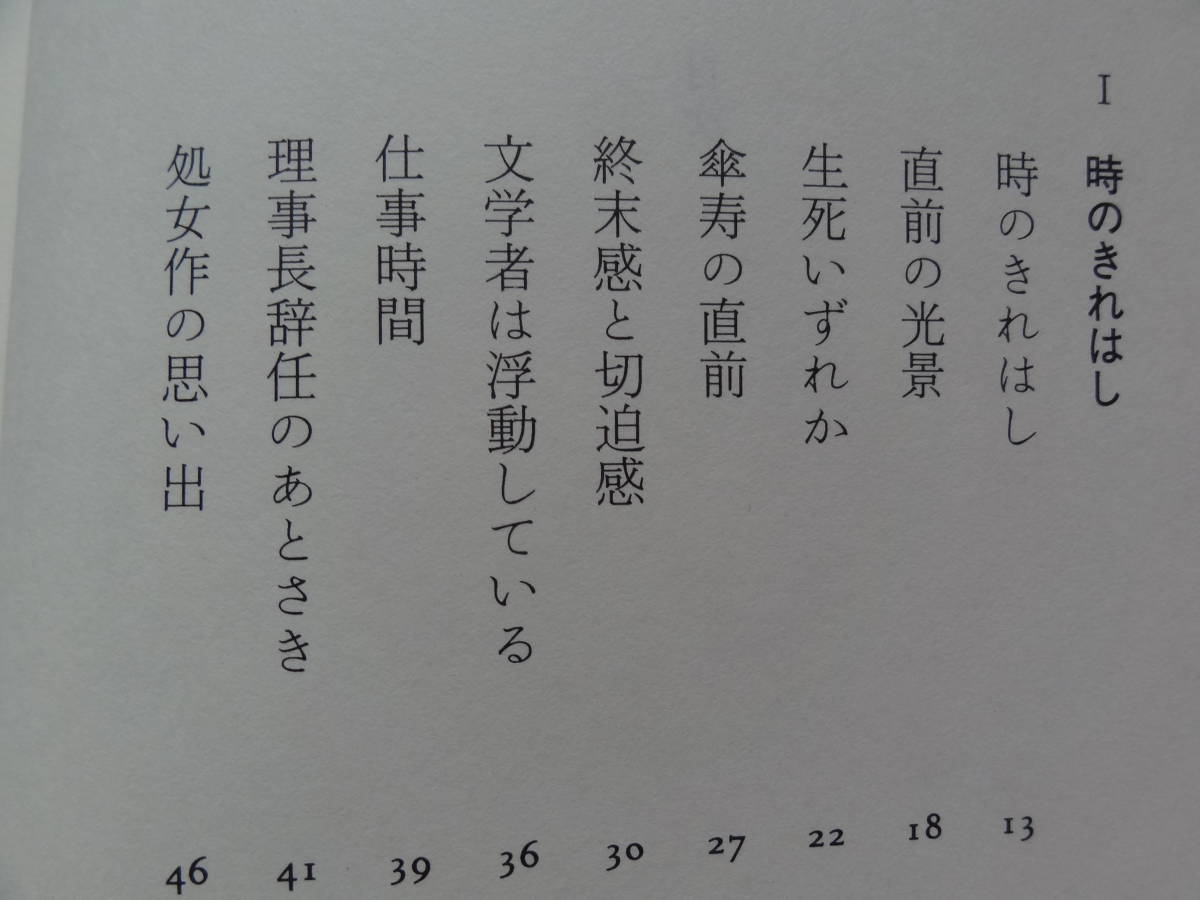 I 時のきれはし
時のきれはし 13
直前の光景 18
生死いずれか 22
傘寿の直前 27
終末感と切迫感 30
文学者は浮動している 36
仕事時間 39
理事長辞任のあとさき 41
処女作の思い出 46